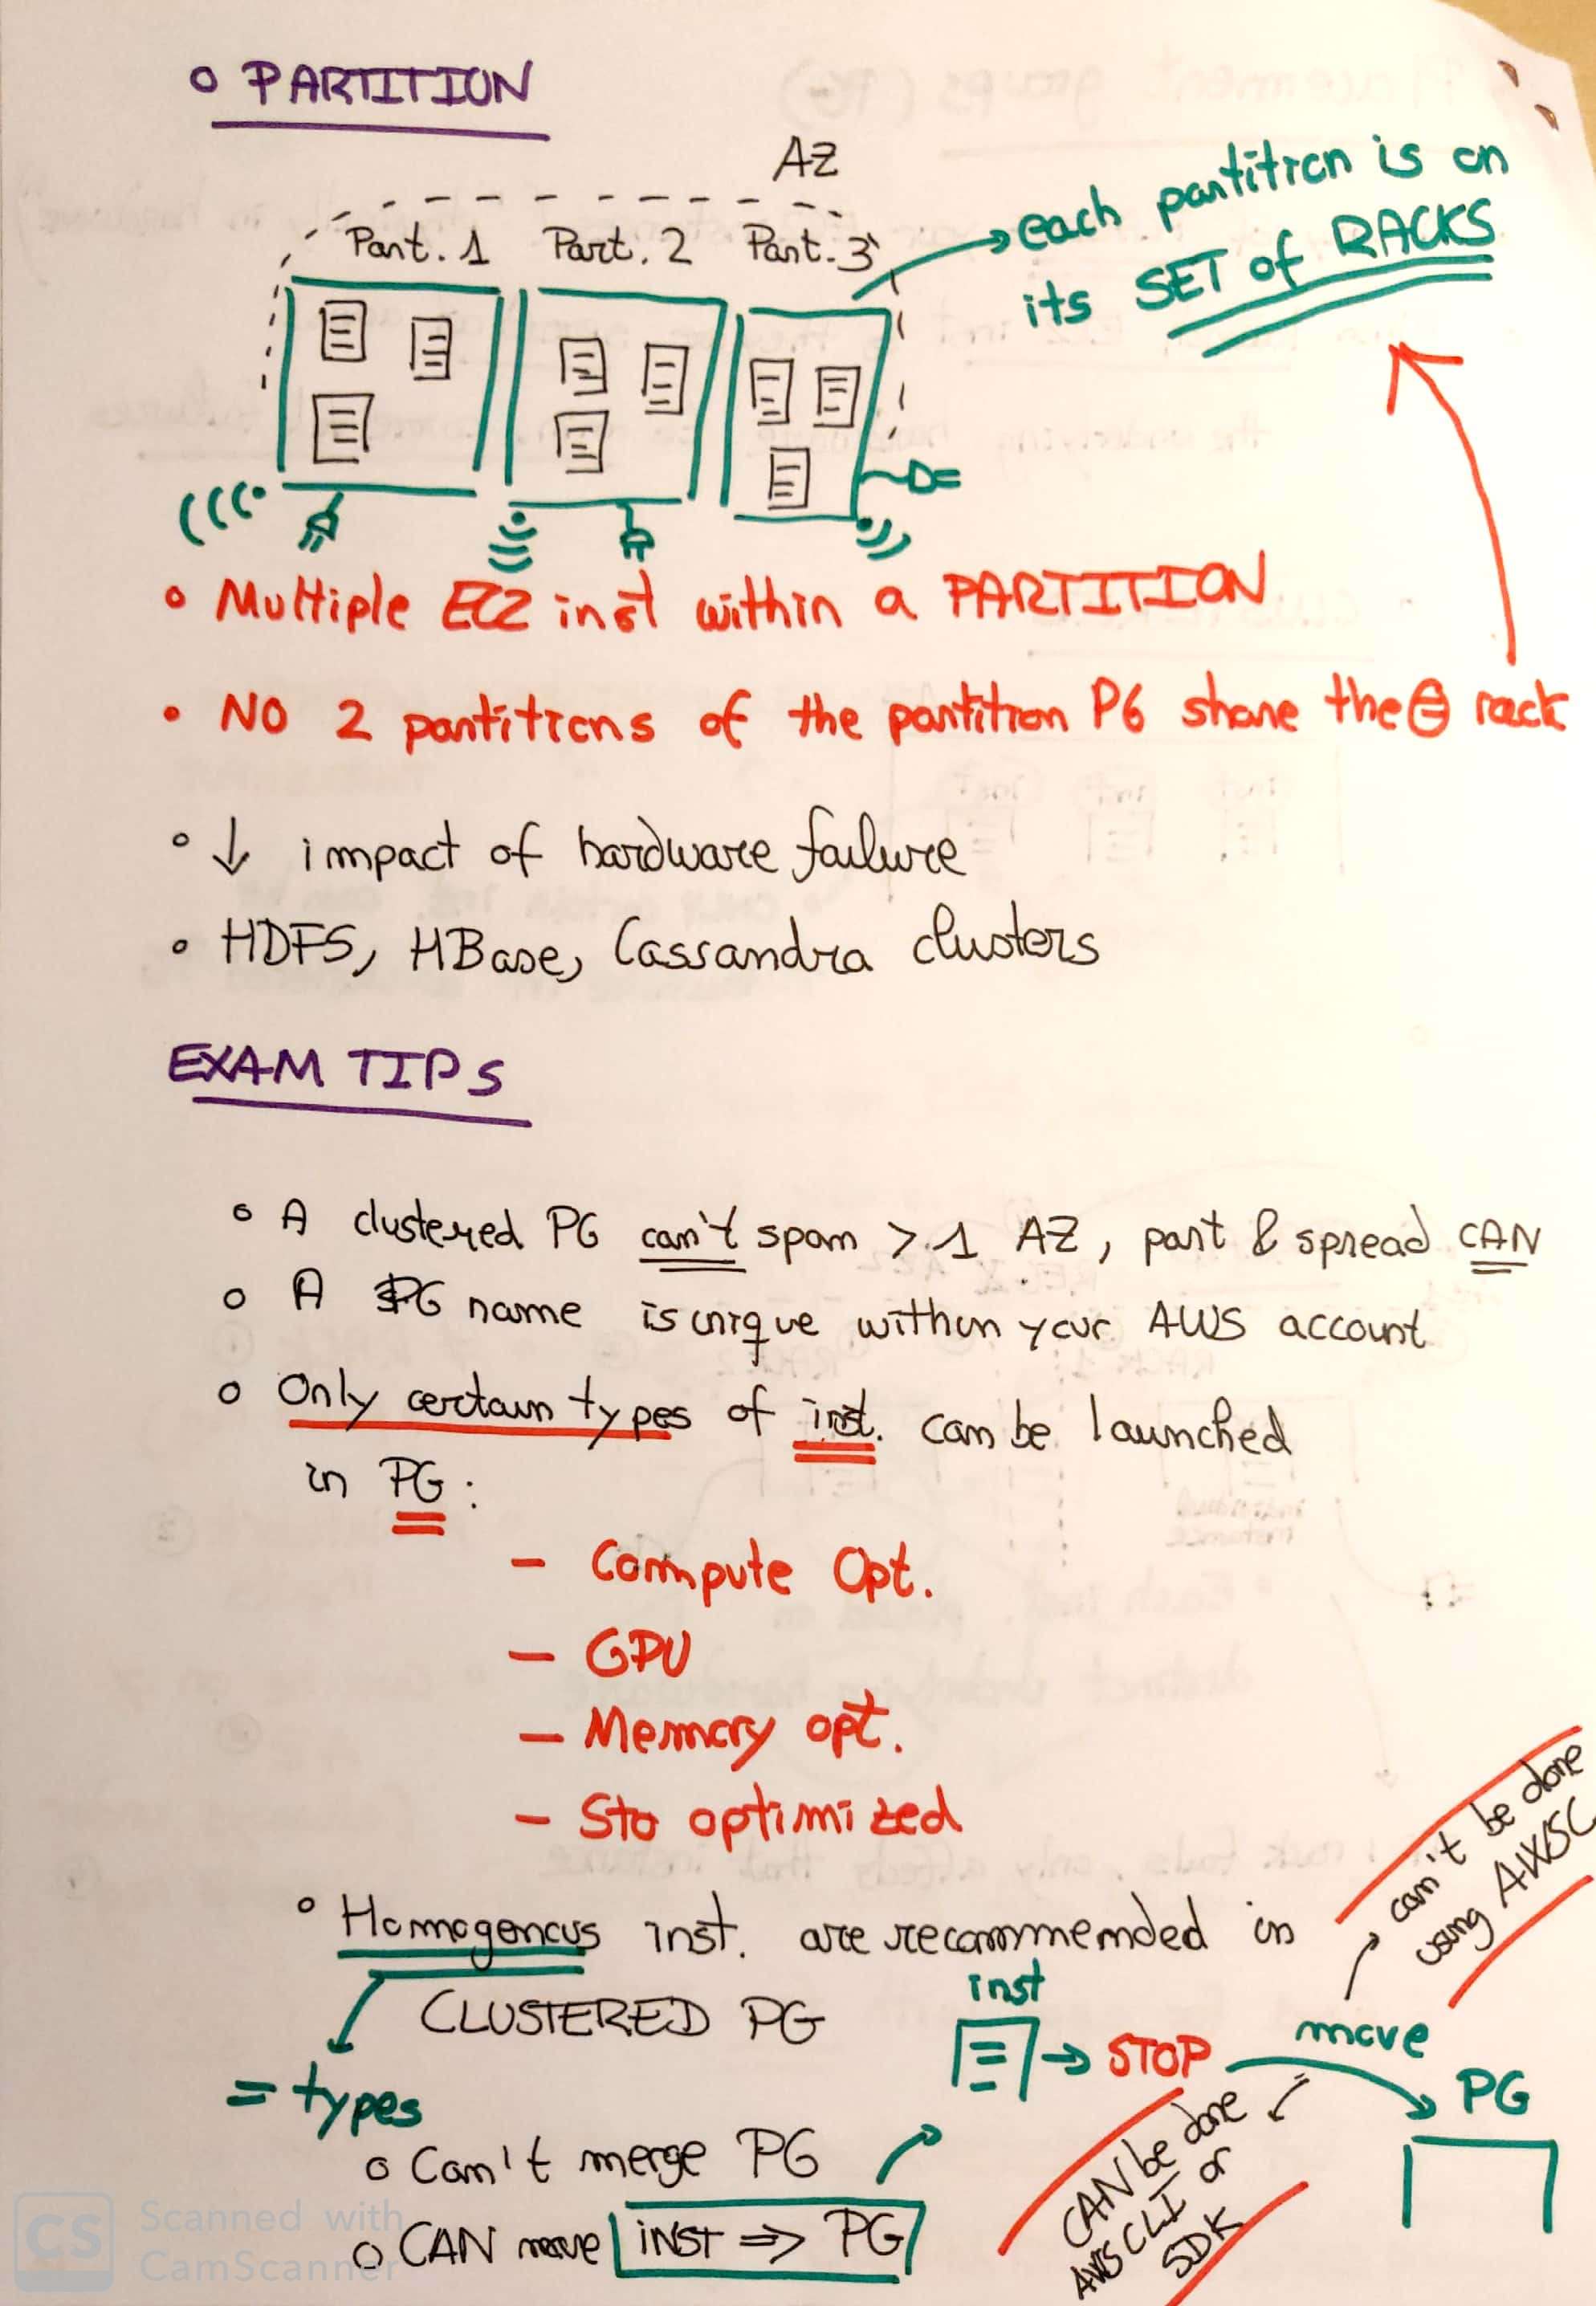 PARTITION
AZ
Part. 1 Part. 2 Part. 3
each partition is on
its SET of RACKS
Multiple EC2 inst within a PARTITION
NO 2 partitions of the partition PG share the = rack
↓ impact of hardware failure
HDFS, HBase, Cassandra clusters
EXAM TIPS
A clustered PG can't span > 1 AZ, part & spread CAN
A PG name is unique within your AWS account
Only certain types of inst. can be launched
in PG:
- Compute Opt.
- GPU
- Memory opt.
- Sto optimized
Homogenous inst. are recommended in
CLUSTERED PG
= types
can't be done
using AWSC
inst
→ STOP
move
PG
CAN be done
AWS CLI or
SDK
Can't merge PG
CAN move INST ⇒ PG
CS Scanned with
CamScanner